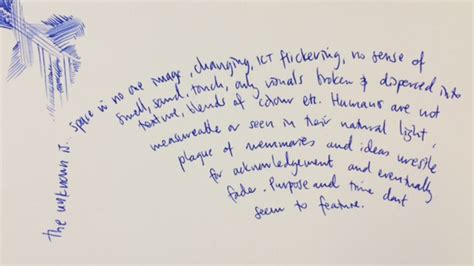 the unknown is.. space is no one image, changing, ICT flickering, no sense of
smell, sound, touch, only visuals broken & dispersed into
texture, blends of colour etc. Humans are not
measureable or seen in their natural light,
plague of memmories and ideas wrestle
for acknowledgement and eventually
fade. Purpose and time dont
seem to feature.